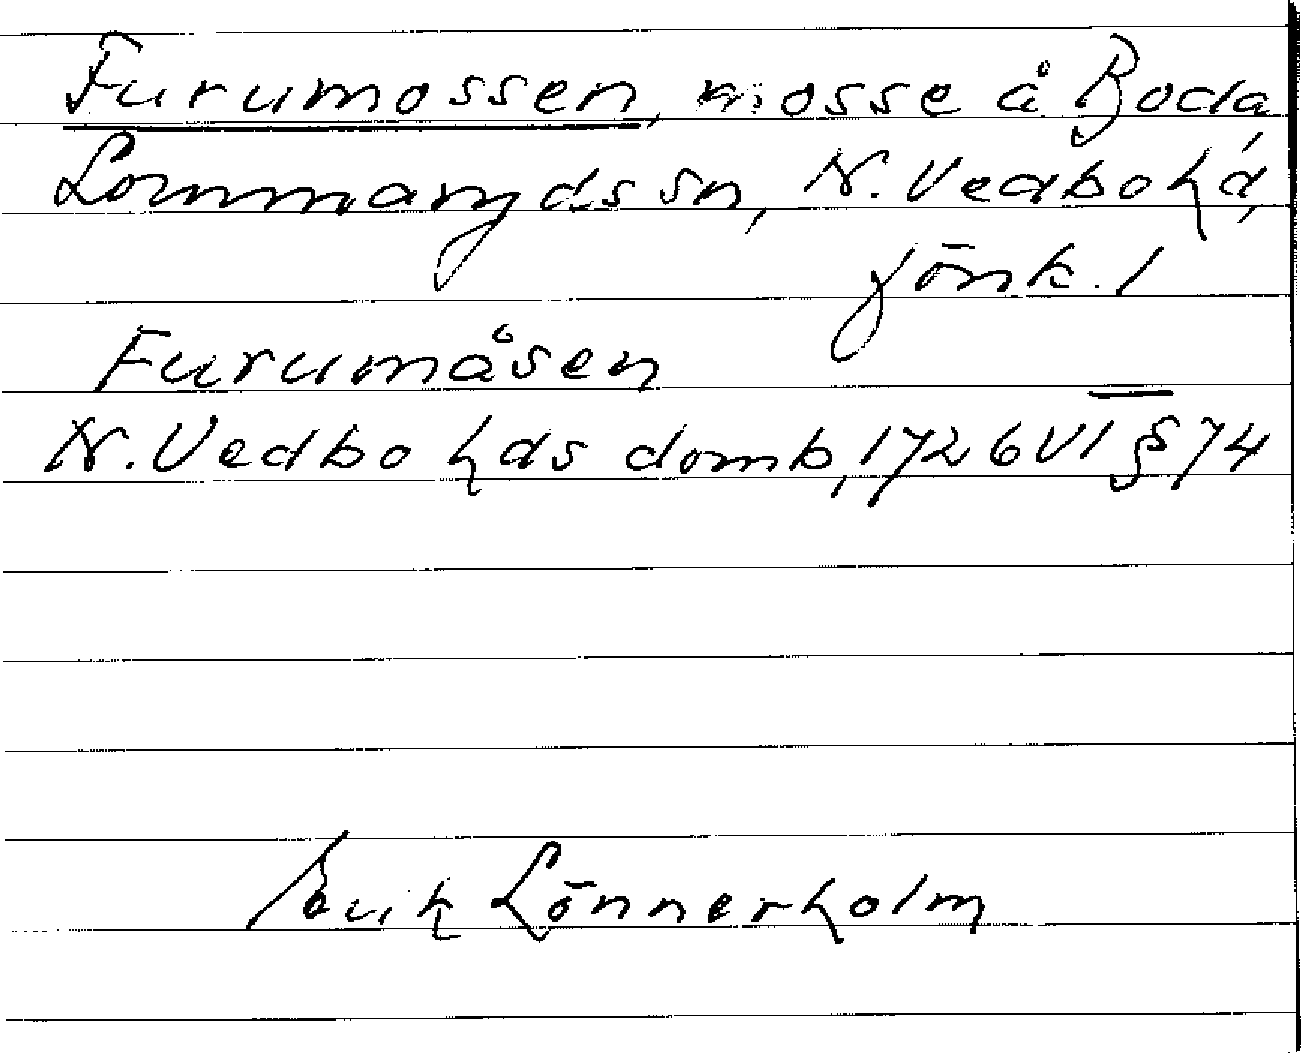 Furumossen, mosse å Boda,
Lommaryds sn, N. Vedbo hd,
Jönk. l
Furumåsen
N. Vedbo hds domb, 1726 VI § 74
Erik Lönnerholm